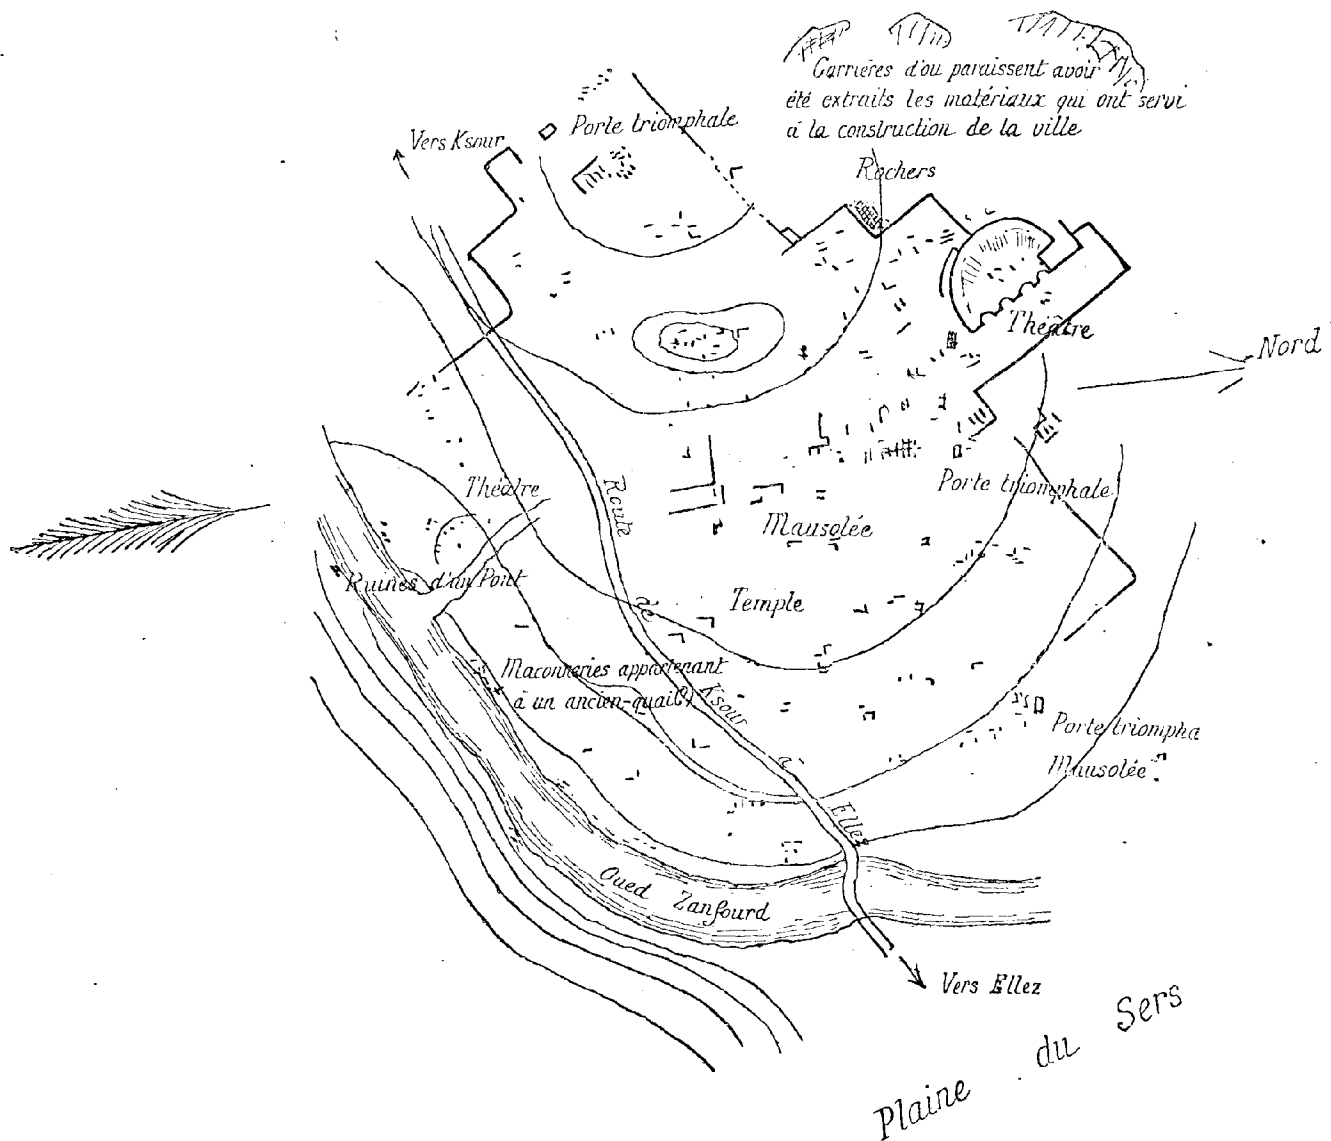 Carrières d'ou paraissent avoir
été extraits les matériaux qui ont servi
à la construction de la ville
Porte triomphale
Vers Ksour
Rochers
Théâtre
Nord
Théâtre
Porte triomphale
Route de Ksour à Ellez
Mausolée
Ruines d'un Pont
Temple
Maconneries appartenant
à un ancien-quai(?)
Porte triompha
Mausolée
Oued Zanfourd
Vers Ellez
Plaine du Sers